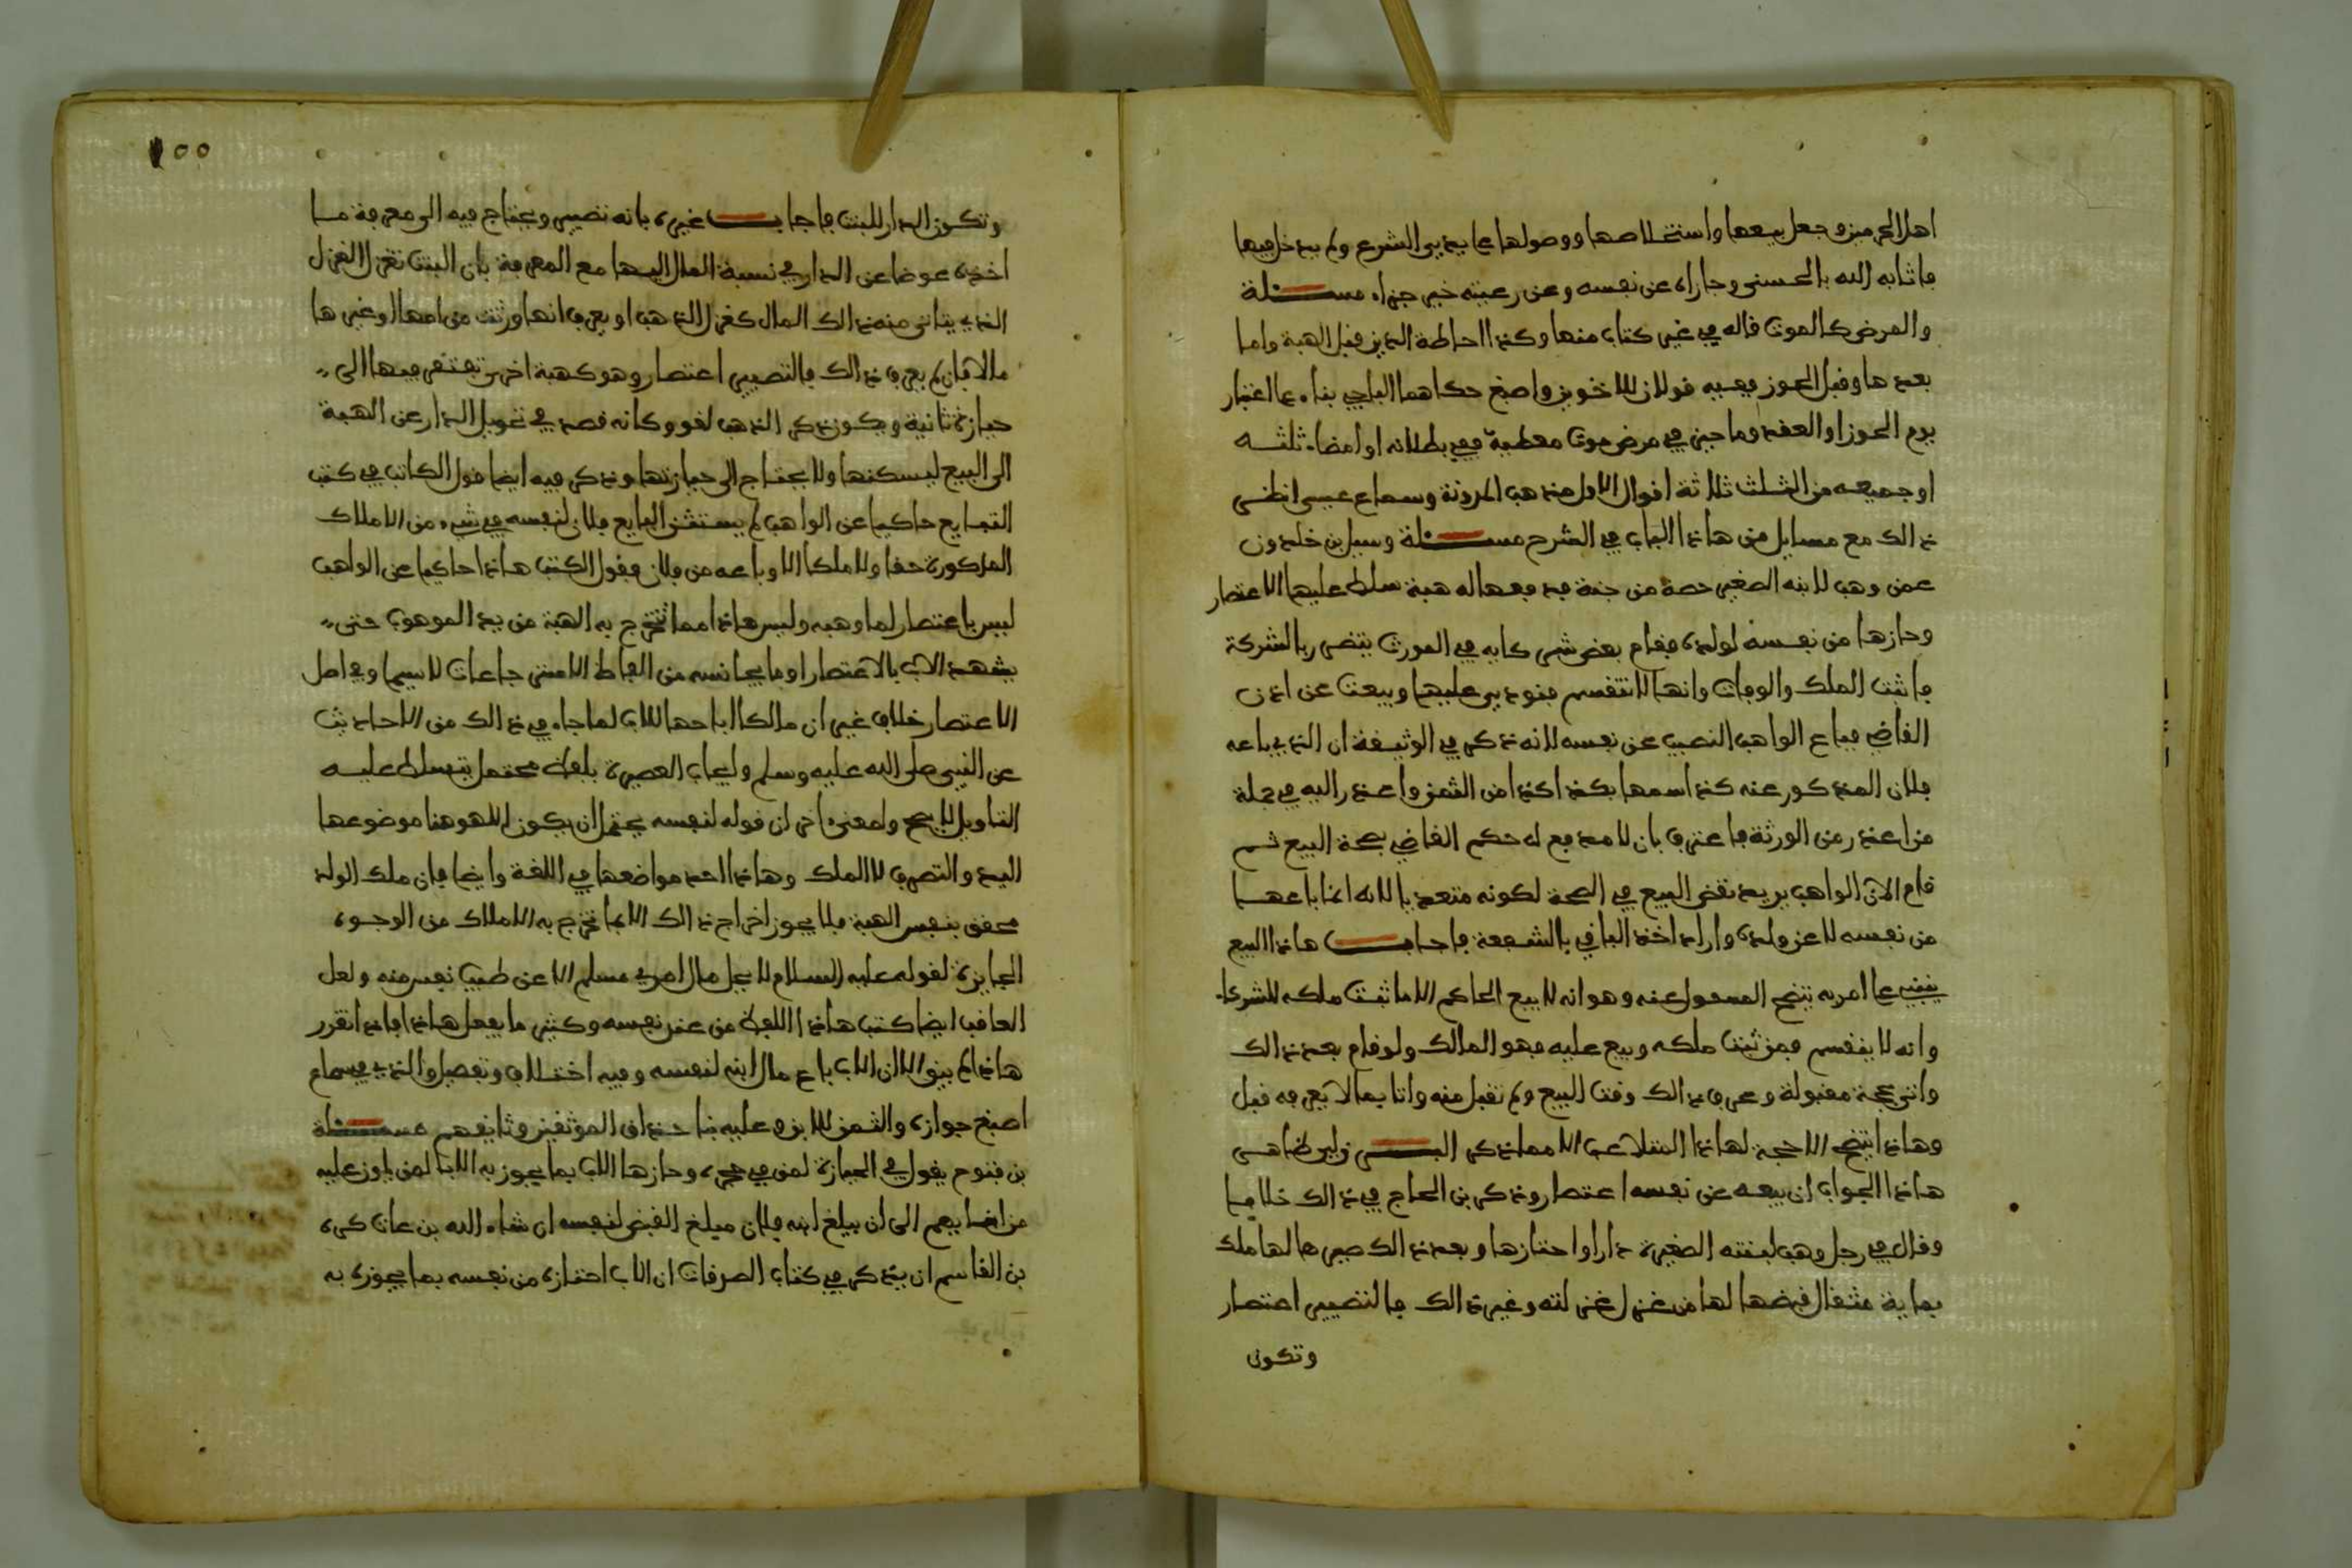 اهل الحرمين وجعل بيعها واستخلاصها ووصولها على يدي الشرع ولم يدخل فيها
فاثابه الله بالحسنى وجازاه عن نفسه وعن رعيته خير جزاء مسئلة
والمرض كالموت قاله في غير كتاب منها وكذا احاطة الدين قبل الهبة واما
بعدها وقبل الحوز ففيه قولان للاخوين واصبغ حكاهما الباجي بناء على اعتبار
يوم الحوز او العقد وما حيز في مرض موت معطيه ففي بطلانه او امضاء ثلثه
او جميعه من الثلث ثلاثة اقوال الاول مذهب المدونة وسماع عيسى انظر
ذالك مع مسايل من هاذا الباب في الشرح مسئلة وسيل بن خلدون
عمن وهب لابنه الصغير حصة من جنة فد فعها له هبة سلط عليها الاعتصار
وحازها من نفسه لولده فقام بعض شركايه في الموت بتضرر بالشركة
فاثبت الملك والوفات وانها لا تنقسم فنودي عليها وبيعت عن اذن
القاضي فباع الواهب النصيب عن نفسه لانه ذكر في الوثيقة ان الذي باعه
فلان المذكور عنه كذا اسمها بكذا كذا من الثمن واعذر اليه في جملة
من اعذر من الورثة فاعترف بان لا مدفع له حكم القاضي بصحة البيع ثم
قام الان الواهب يريد نقض البيع في الصحة لكونه متعديا لانه انما باعها
من نفسه لا عن ولده واراد اخذ الباقي بالشفعة فاجاب هاذا البيع
يبنى على امر به يتضح المسءول عنه وهو انه لا يبيع الحاكم الا ما ثبت ملكه للشركاء
وانه لا ينقسم فمن ثبت ملكه وبيع عليه فهو المالك ولو قام بعد ذالك
واتى بحجة مقبولة وعرف ذالك وقت البيع ولم تقبل منه واتا بما لا يعرفه قبل
وهاذا يتضح الا حجة لهاذا المتلاعب الا مما ذكر البرزلي ظاهر
هاذا الجواب ان بيعه عن نفسه اعتصار وذكر بن الحاج في ذالك خلافا
وقال في رجل وهب لبنته الصغيرة دارا واحتازها وبعد ذالك صيرها لها ملك
بماية مثقال قبضها لها من غزل غزلته وغير ذالك فالتصيير اعتصار
وتكون
وتكون الدار للبنت فاجاب غيره بانه تصيير ويحتاج فيه الى معرفة ما
اخذه عوضا عن الدار في نسبة المال اليها مع المعرفة بان البنت تغزل الغزل
الذي يتاتى منه ذالك المال كغزل الذهب او يعرف انها ورثت من امها او غيرها
مالا فان لم يعرف ذالك فالتصيير اعتصار وهو كهبة اخرى تفتقر فيها الى
حيازة ثانية ويكون ذكر الذهب لغو وكانه قصد في تحويل الدار عن الهبة
الى البيع ليسكنها ولا يحتاج الى حيازتها وذكر فيه ايضا قول الكاتب في كتب
التبايع حاكيا عن الواهب لم يستثن البايع فلان لنفسه في شيء من الاملاك
المذكورة حقا ولا ملكا الا وباعه من فلان فقول الكتب هاذا حاكيا عن الواهب
ليس باعتصار لما وهبه وليس هاذا مما تخرج به الهبة من يد الموهوب حتى
يشهد الاب بالاعتصار او ما يجانسه من الفاظ لا سيما وفي اصل
الاعتصار خلاف غير ان مالكا اباحها للاب لما جاء في ذالك من الاحاديث
عن النبي صلى الله عليه وسلم بلفظ محتمل يتسلط عليه
التاويل لا يصح ولمعنى اخر ان قوله لنفسه يحتمل ان يكون اللام هنا موضوعها
اليد والتصرف لا الملك وهاذا احد مواضعها في اللغة وايضا فان ملك الولد
محقق بنفس الهبة فلا يجوز اخراج ذالك الا بما تخرج به الاملاك من الوجوه
الجايزة لقوله عليه السلام لا يحل مال امرئ مسلم الا عن طيب نفس منه ولعل
العاقد ايضا كتب هاذا اللفظ من عند نفسه وكثير ما يفعل هاذا فاذا تقرر
هاذا لم يبق الا ان الاب باع مال ابنه لنفسه وفيه اختلاف وتفصيل والذي في سماع
اصبغ جوازه والثمن للابن وعليه حذاق الموثقين وثايقهم مسئلة
بن فتوح يقول في الحيازة لمن في حجره وحازها الاب بما يجوز به الابا لمن يلون عليه
من اصاغرهم الى ان يبلغ ابنه فلان مبلغ القبض لنفسه ان شاء الله بن عات كره
بن القاسم ان يذكر في كتاب الصدقات ان الاب احتازه من نفسه بما يحوزه به